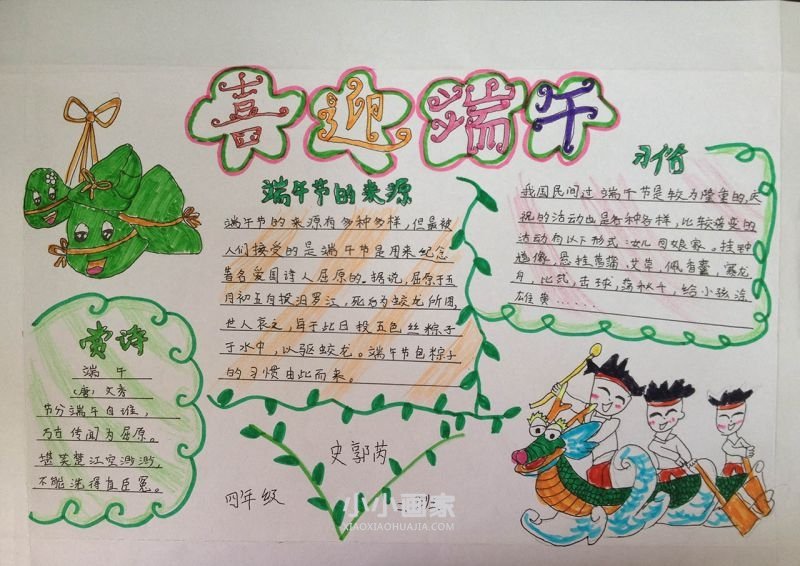 喜迎端午
端午节的来源
端午节的来源有多种多样，但最被
人们接受的是端午节是用来纪念
著名爱国诗人屈原的。据说，屈原于五
月初五自投汨罗江，死后为蛟龙所困，
世人哀之，每于此日投五色丝粽子
于水中，以驱蛟龙。端午节包粽子
的习惯由此而来。
习俗
我国民间过端午节是较为隆重的，庆
祝的活动也是各种各样，比较普变的
活动有以下形式：女儿回娘家，挂钟
馗像，悬挂菖蒲，艾草，佩香囊，赛龙
舟，比武，击球，荡秋千，给小孩涂
雄黄……
赏诗
端午
（唐）文秀
节分端午自谁，
万古传闻为屈原。
堪笑楚江空渺渺，
不能洗得直臣冤。
史郭芮
四年级
小小画家
XIAOXIAOHUAJIA.COM